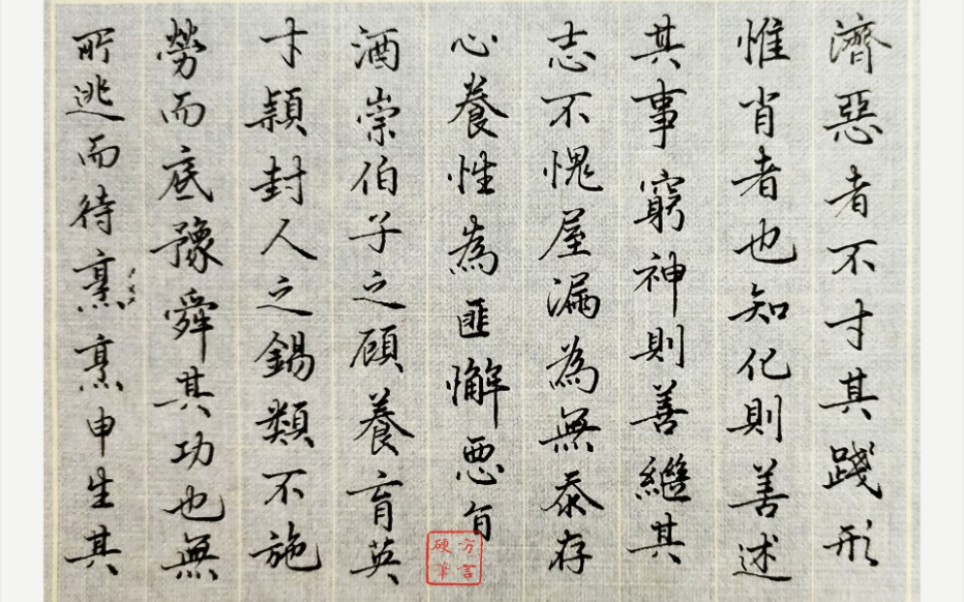 濟惡者不才其踐形
惟肖者也知化則善述
其事窮神則善繼其
志不愧屋漏為無忝存
心養性為匪懈悪旨
酒崇伯子之顧養育英
才穎封人之錫類不施
勞而底豫舜其功也無
所逃而待烹烹申生其
方言
硬筆